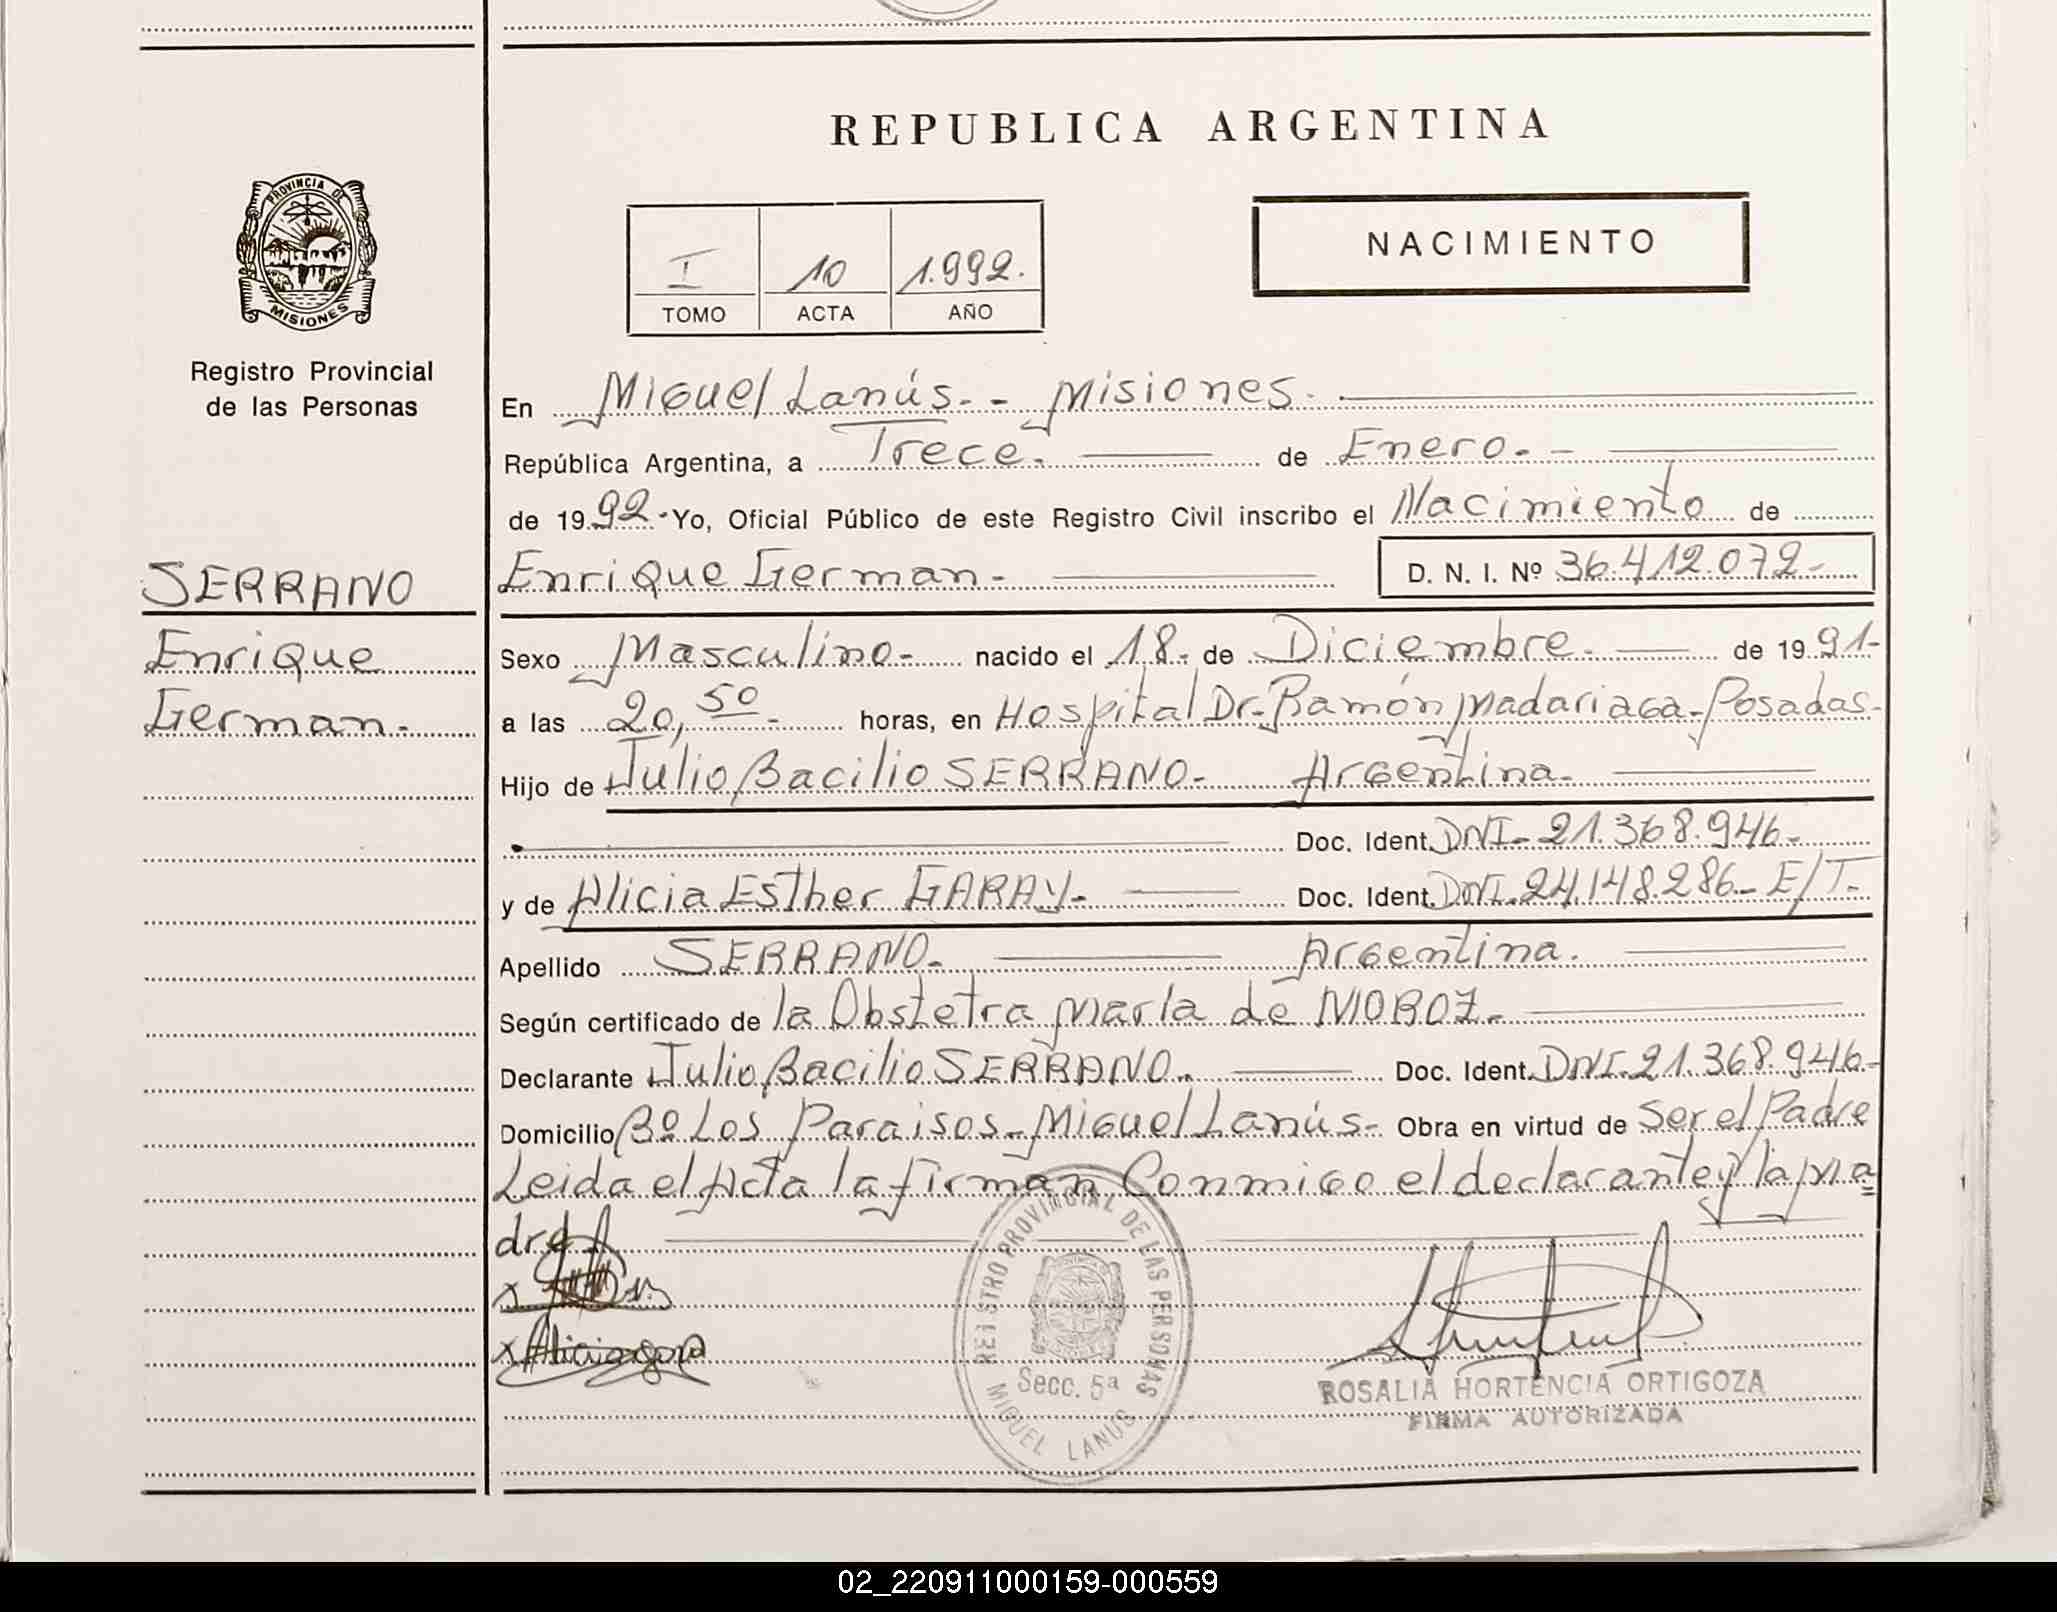 REPUBLICA ARGENTINA
PROVINCIA DE
MISIONES
Registro Provincial
de las Personas
NACIMIENTO
I 10 1.992.
TOMO ACTA AÑO
En Miguel Lanús.- - Misiones.
República Argentina, a Trece. de Enero.-
de 1992.- Yo, Oficial Público de este Registro Civil inscribo el Nacimiento de
Enrique German.- D. N. I. Nº 36.412.072.-
SERRANO
Enrique
German.-
Sexo Masculino.- nacido el 18.- de Diciembre.- de 1991.-
a las 20,50.- horas, en Hospital Dr. Ramón Madariaga-Posadas.-
Hijo de Julio Bacilio SERRANO.- Argentina.-
Doc. Ident. DNI-21.368.946.-
y de Alicia Esther GARAY.- Doc. Ident. DNI.24.148.286.- E/T.-
Apellido SERRANO.- Argentina.
Según certificado de la Obstetra Marla de MOROZ.-
Declarante Julio Bacilio SERRANO.- Doc. Ident. DNI.21.368.946.-
Domicilio Bº Los Paraisos-Miguel Lanús.- Obra en virtud de Ser el Padre
Leida el Acta la firman Conmigo el declarante y la ma=
dre
REGISTRO PROVINCIAL DE LAS PERSONAS
Secc. 5ª
MIGUEL LANUS
ROSALIA HORTENCIA ORTIGOZA
FIRMA AUTORIZADA
02_220911000159-000559